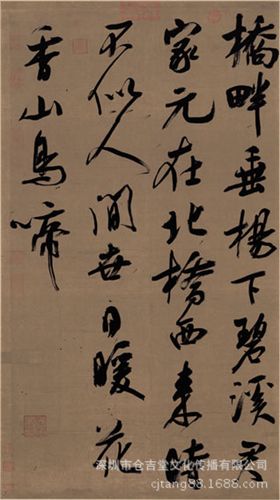 橋畔垂楊下碧溪君
家元在北橋西來時
不似人間世日暖花
香山鳥啼
深圳市仓吉堂文化传播有限公司
cjtang88.1688.com